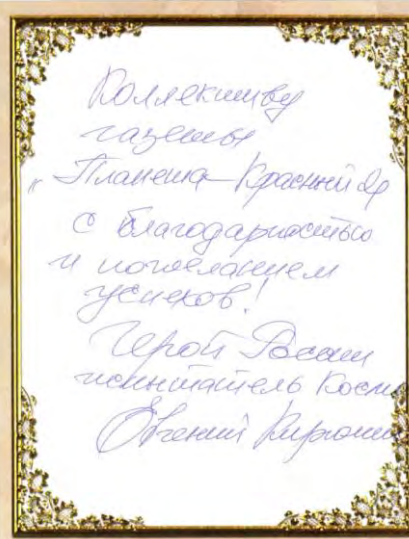 Коллективу
газеты
„Планета Красный Яр
с благодарностью
и пожеланием
успехов!
Герой России
испытатель косм
Евгений Кирюши